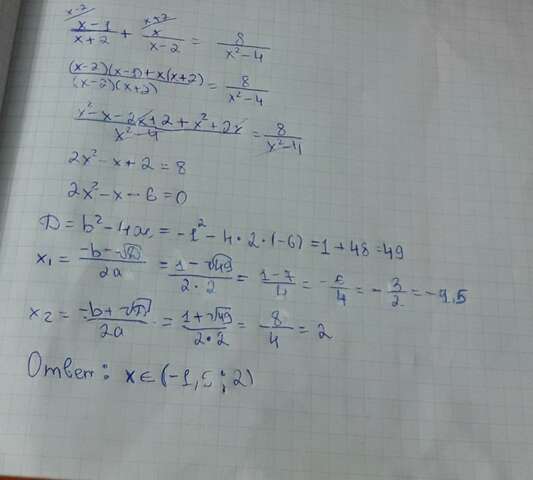 x-2 x+2
x-1/x+2 + x/x-2 = 8/x²-4
(x-2)(x-1)+x(x+2)/(x-2)(x+2) = 8/x²-4
x²-x-2x+2+x²+2x/x²-4 = 8/x²-4
2x²-x+2=8
2x²-x-6=0
D=b²-4ac=-1²-4·2·(-6)=1+48=49
x₁=-b-√D/2a=1-√49/2·2=1-7/4=-6/4=-3/2=-1,5
x₂=-b+√D/2a=1+√49/2·2=8/4=2
Ответ: x∈(-1,5;2)